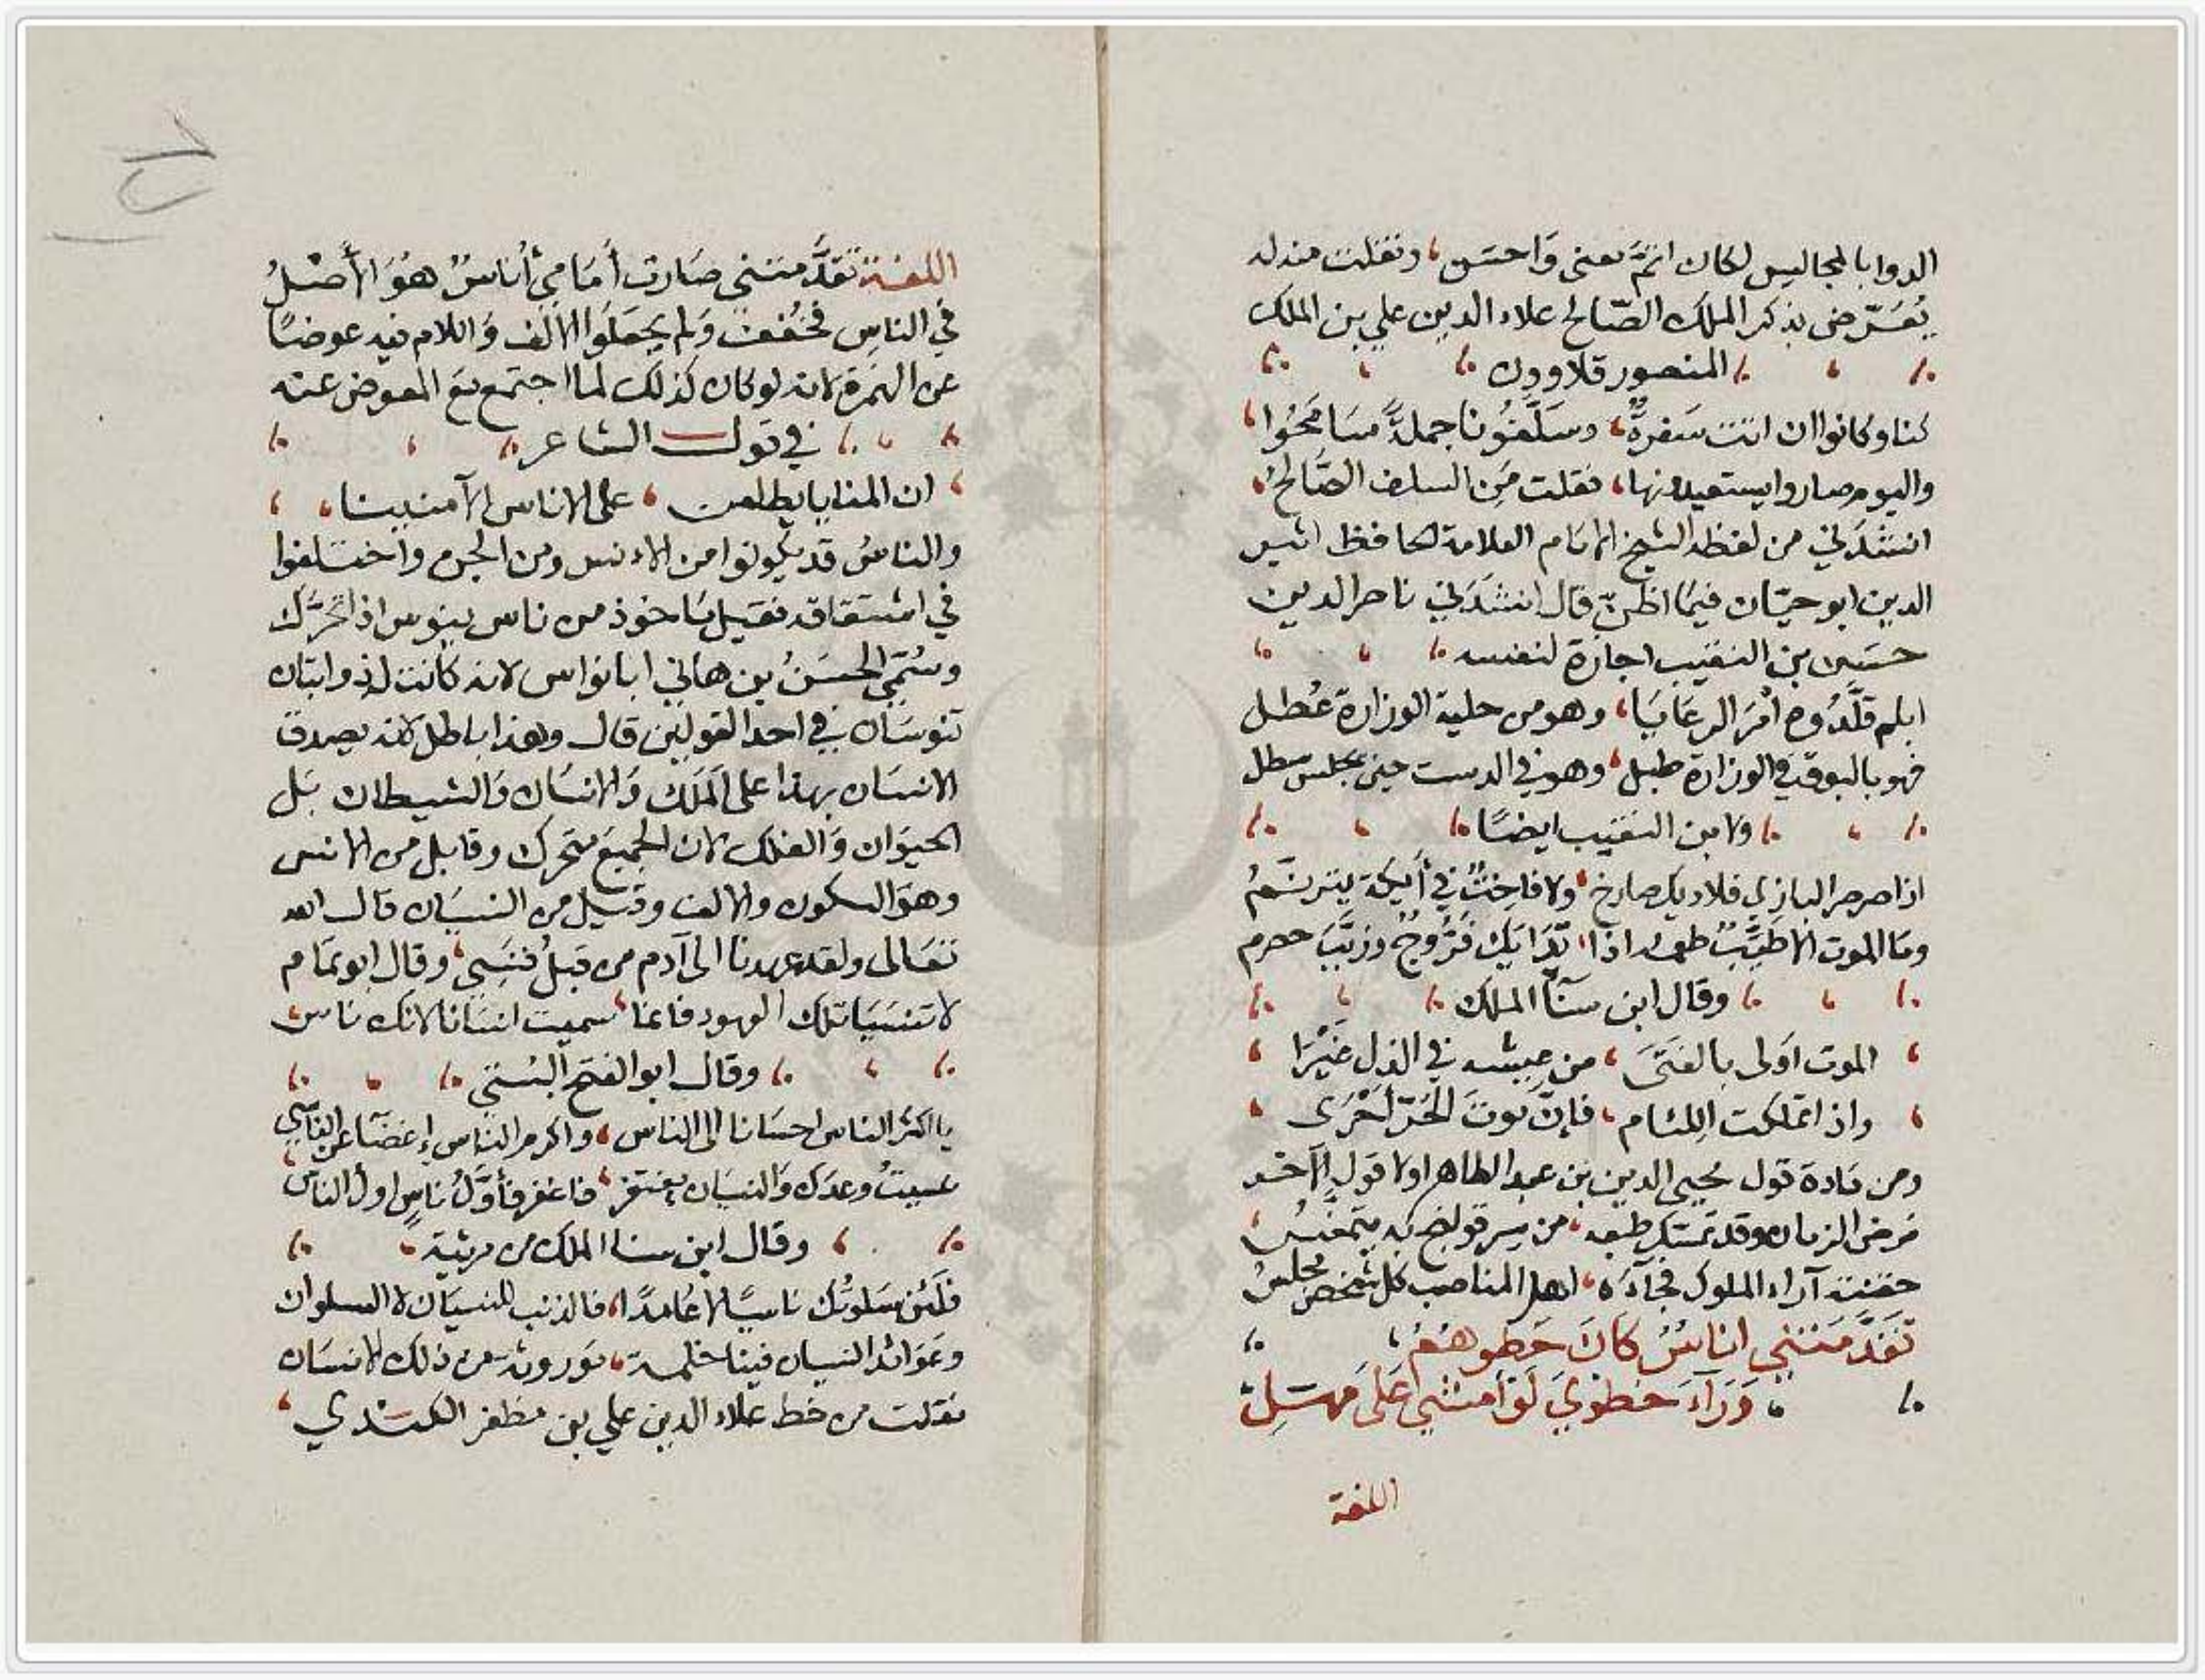 الدوا بالمجاليس لكان اتمَّ معنى وَاحسَن، ونقلت منه له
يُعَرّض بذكر الملك الصّالح علاء الدين علي بن الملك
المنصور قلاوون
كنا وكانوا ان اتت سَفرةٌ، وسَلَّفُونا جملةً سَامَحُوا
واليوم صاروا يستعيدونها، فقلت مَن السلف الصَّالحُ
انشدَني من لفظه الشيخ الامَام العلامة الحافظ اثير
الدين ابو حيّان فيمَا اظنّ قال انشدَني ناصر الدين
حسَين بن النقيب اجازة لنفسه
ابلم قلَّدُوه أمْرَ الرعَايَا، وهو من حلية الوزارة عُطل
فهو بالبوق في الوزارة طبل، وهو في الدست حين يجلس سطل
ولابن النقيب ايضًا
اذا صرصر البازي فلا ديك صارخ، ولا فاختٌ في أيكة يترنَّمُ
ومَا الموت الا طَيِّبٌ طعمه اذا، تَدَايَكَ فَرُّوجٌ وزَبَّبَ حصرم
وقال ابن سنآ الملك
الموت اَولى بالفَتَى، من عيشه في الذل غَيْرَا
واذا تملكت اللئام، فإنَّ مَوتَ الحُرّ أحْرَى
ومن مَادة قول محيي الدين بن عبد الظاهر اولا قول الآخر
مَرض الزمان وقد تمسّك طبعه، من سر قولنج به يتمغّسُ
حقنته آراء الملوك فجآءَه، اهل المناصب كل شخص مجلسُ
تَقَدَّمَتْني اناسٌ كانَ خَطوهُمُ
وَرَآءَ خَطوِيَ لَوْ أمشي عَلَى مَهَلِ
اللغة
اللغة تقدَّمتني صَارت أمَامي أناسٌ هُوَ الأصْلُ
في الناسِ فخُفِّفَ وَلم يجعَلوا الالف وَاللام فيه عوضًا
عن الهَمزة لانه لو كان كذلك لما اجتمع مَع المعوض عنه
في قول الشاعر
ان المنايا يطلعن، على الاناس الآمنينا
والناسُ قد يكونوا من الانس ومن الجن واختلفوا
في اشتقاقه فقيل مَاخوذ من ناس ينوس اذا تحرّك
وسُمّي الحسَنُ بن هاني ابا نواس لانه كانت له ذوابتان
تنوسَان في احد القولين قال وهذا باطل لانه يصدق
الانسَان بهذا على المَلَك وَالانسَان وَالشيطان بَل
الحيوَان وَالفلك لان الجميعَ متحرك وقابل من الانس
وهوَ السكون والالف وقيل من النسيَان قال الله
تعَالى ولقد عهدنا الى آدم من قبلُ فنَسِي، وقال ابو تمَام
لا تنسَيَا تلك العهود فانما، سميت انسَانا لانك ناس
وقال ابو الفتح البُستي
يا اكثر الناس احسَانا الى الناس، واكرم الناس إغضآءً عن الناسي
نسيتُ وعدك وَالنسيَان مغتفر، فاغفر فأوّلُ ناسٍ اول الناس
وقال ابن سنا الملك من مرثية
فلَئن سَلوتُك ناسيًا لا عَامدًا، فالذنب للنسيَان لا السلوان
وعوَائد النسيان فينا خلقة، مَوروثة عن ذلك الانسَان
نقلت من خط علاء الدين علي بن مظفر الكندي